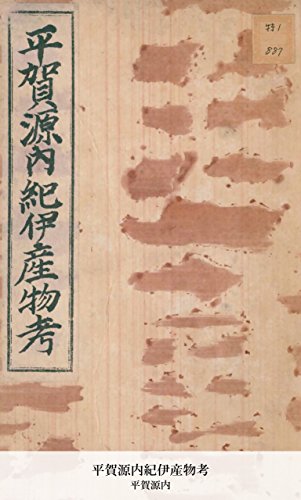 平賀源内紀伊産物考
特1
887
平賀源内紀伊産物考
平賀源内